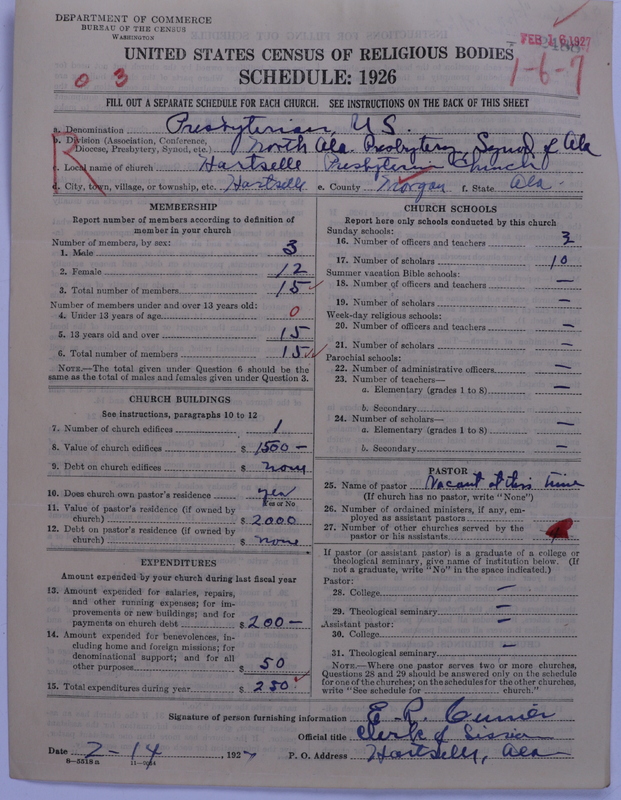 DEPARTMENT OF COMMERCE
BUREAU OF THE CENSUS
WASHINGTON
FEB 16 1927
1-6-7
UNITED STATES CENSUS OF RELIGIOUS BODIES
SCHEDULE: 1926
0 3
FILL OUT A SEPARATE SCHEDULE FOR EACH CHURCH. SEE INSTRUCTIONS ON THE BACK OF THIS SHEET
R
a. Denomination Presbyterian, U.S.
b. Division (Association, Conference, Diocese, Presbytery, Synod, etc.) North Ala. Presbytery, Synod of Ala
c. Local name of church Hartselle Presbyterian Church
d. City, town, village, or township, etc. Hartselle e. County Morgan f. State Ala.
MEMBERSHIP
Report number of members according to definition of
member in your church
Number of members, by sex:
1. Male 3
2. Female 12
3. Total number of members 15
Number of members under and over 13 years old:
4. Under 13 years of age 0
5. 13 years old and over 15
6. Total number of members 15
NOTE.—The total given under Question 6 should be the
same as the total of males and females given under Question 3.
CHURCH BUILDINGS
See instructions, paragraphs 10 to 12
7. Number of church edifices 1
8. Value of church edifices $ 1500 -
9. Debt on church edifices $ none
10. Does church own pastor's residence yes
Yes or No
11. Value of pastor's residence (if owned by
church) $ 2000
12. Debt on pastor's residence (if owned by
church) $ none
EXPENDITURES
Amount expended by your church during last fiscal year
13. Amount expended for salaries, repairs,
and other running expenses; for im-
provements or new buildings; and for
payments on church debt $ 200 -
14. Amount expended for benevolences, in-
cluding home and foreign missions; for
denominational support; and for all
other purposes $ 50
15. Total expenditures during year $ 250
CHURCH SCHOOLS
Report here only schools conducted by this church
Sunday schools:
16. Number of officers and teachers 3
17. Number of scholars 10
Summer vacation Bible schools:
18. Number of officers and teachers —
19. Number of scholars —
Week-day religious schools:
20. Number of officers and teachers —
21. Number of scholars —
Parochial schools:
22. Number of administrative officers —
23. Number of teachers—
a. Elementary (grades 1 to 8) —
b. Secondary
24. Number of scholars—
a. Elementary (grades 1 to 8) —
b. Secondary —
PASTOR
25. Name of pastor Vacant at this time
(If church has no pastor, write "None")
26. Number of ordained ministers, if any, em-
ployed as assistant pastors
27. Number of other churches served by the
pastor or his assistants
If pastor (or assistant pastor) is a graduate of a college or
theological seminary, give name of institution below. (If
not a graduate, write "No" in the space indicated.)
Pastor:
28. College —
29. Theological seminary —
Assistant pastor:
30. College —
31. Theological seminary —
NOTE.—Where one pastor serves two or more churches,
Questions 28 and 29 should be answered only on the schedule
for one of the churches; on the schedules for the other churches,
write "See schedule for church."
Signature of person furnishing information E. R.
Official title Clerk of Session
Date 2-14 1927 P. O. Address Hartselle, Ala
8-5518a